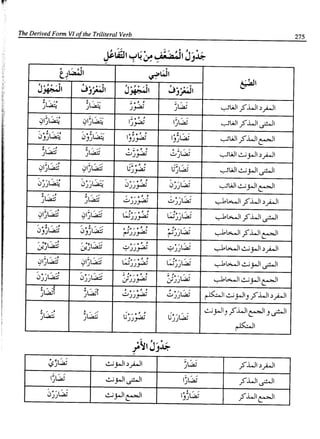 The Derived Form VI of the Triliteral Verb 275
جَدْوَلُ الْمُضَعَّفِ مِنْ بَابِ التَّفَاعُلِ
الصيغ الْمَاضِي الْمُضَارِعُ
الْمَعْرُوْفُ الْمَجْهُوْلُ الْمَعْرُوْفُ الْمَجْهُوْلُ
المفرد المذكر الغائب تَضَارَّ تُضُوْرِرَ يَتَضَارُّ يُتَضَارُّ
المثنى المذكر الغائب تَضَارَّا تُضُوْرِرَا يَتَضَارَّانِ يُتَضَارَّانِ
الجمع المذكر الغائب تَضَارُّوْا تُضُوْرِرُوْا يَتَضَارُّوْنَ يُتَضَارُّوْنَ
المفرد المؤنث الغائب تَضَارَّتْ تُضُوْرِرَتْ تَتَضَارُّ تُتَضَارُّ
المثنى المؤنث الغائب تَضَارَّتَا تُضُوْرِرَتَا تَتَضَارَّانِ تُتَضَارَّانِ
الجمع المؤنث الغائب تَضَارَرْنَ تُضُوْرِرْنَ يَتَضَارَرْنَ يُتَضَارَرْنَ
المفرد المذكر المخاطب تَضَارَرْتَ تُضُوْرِرْتَ تَتَضَارُّ تُتَضَارُّ
المثنى المذكر المخاطب تَضَارَرْتُمَا تُضُوْرِرْتُمَا تَتَضَارَّانِ تُتَضَارَّانِ
الجمع المذكر المخاطب تَضَارَرْتُمْ تُضُوْرِرْتُمْ تَتَضَارُّوْنَ تُتَضَارُّوْنَ
المفرد المؤنث المخاطب تَضَارَرْتِ تُضُوْرِرْتِ تَتَضَارِّيْنَ تُتَضَارِّيْنَ
المثنى المؤنث المخاطب تَضَارَرْتُمَا تُضُوْرِرْتُمَا تَتَضَارَّانِ تُتَضَارَّانِ
الجمع المؤنث المخاطب تَضَارَرْتُنَّ تُضُوْرِرْتُنَّ تَتَضَارَرْنَ تُتَضَارَرْنَ
المفرد المذكر والمؤنث المتكلم تَضَارَرْتُ تُضُوْرِرْتُ أَتَضَارُّ أُتَضَارُّ
المثنى و الجمع المذكر و المؤنث المتكلم تَضَارَرْنَا تُضُوْرِرْنَا نَتَضَارُّ نُتَضَارُّ
جَدْوَلُ الْأَمْرِ
المفرد المذكر تَضَارَّ المفرد المؤنث تَضَارِّيْ
المثنى المذكر تَضَارَّا المثنى المؤنث تَضَارَّا
الجمع المذكر تَضَارُّوْا الجمع المؤنث تَضَارَرْنَ